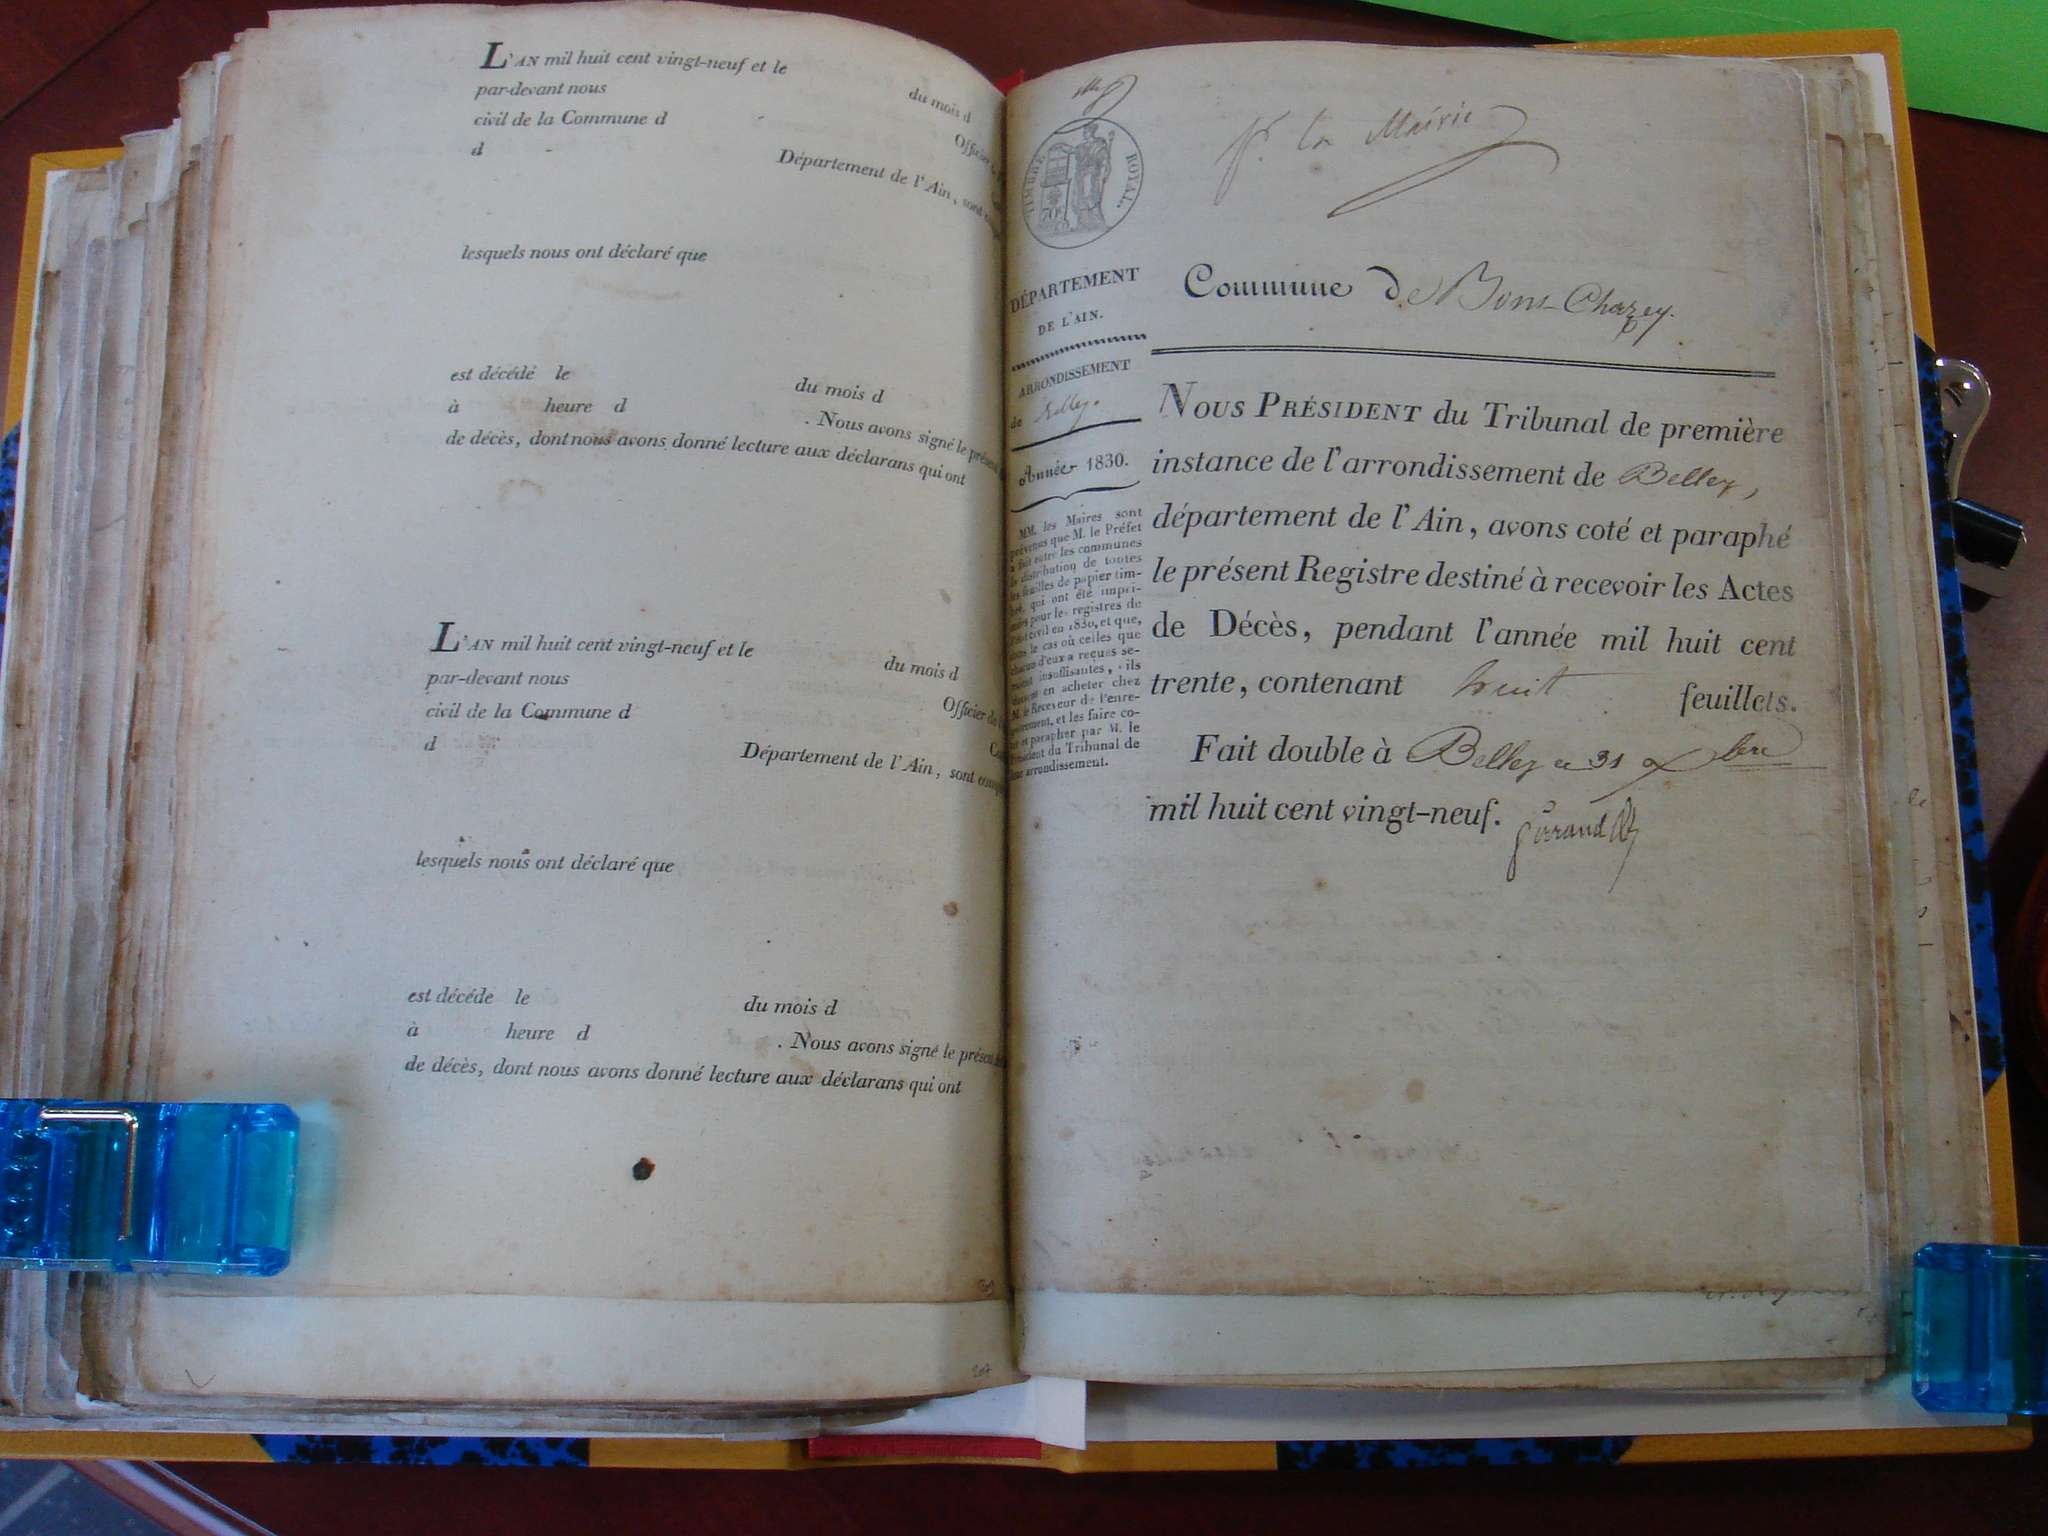 L'AN mil huit cent vingt-neuf et le du mois d
par-devant nous Officier
civil de la Commune d
d Département de l'Ain, sont
lesquels nous ont déclaré que
est décédé le du mois d
à heure d . Nous avons signé le présent
de décès, dont nous avons donné lecture aux déclarans qui ont
L'AN mil huit cent vingt-neuf et le du mois d
par-devant nous Officier de
civil de la Commune d
d Département de l'Ain, sont
lesquels nous ont déclaré que
est décédé le du mois d
à heure d . Nous avons signé le présent
de décès, dont nous avons donné lecture aux déclarans qui ont
207
pr. la Mairie
TIMBRE ROYAL.
DÉPARTEMENT
DE L'AIN.
ARRONDISSEMENT
de Belley.
Année 1830.
MM. les Maires sont
prévenus que M. le Préfet
a fait entre les communes
la distribution de toutes
les feuilles de papier tim-
bré, qui ont été impri-
mées pour les registres de
l'état civil en 1830, et que,
dans le cas où celles que
chacun d'eux a reçues se-
raient insuffisantes, ils
devront en acheter chez
M. le Receveur de l'enre-
gistrement, et les faire co-
ter et parapher par M. le
Président du Tribunal de
leur arrondissement.
Commune de Bons-Chazey.
NOUS PRÉSIDENT du Tribunal de première
instance de l'arrondissement de Belley,
département de l'Ain, avons coté et paraphé
le présent Registre destiné à recevoir les Actes
de Décès, pendant l'année mil huit cent
trente, contenant huit feuillets.
Fait double à Belley ce 31 xbre
mil huit cent vingt-neuf.